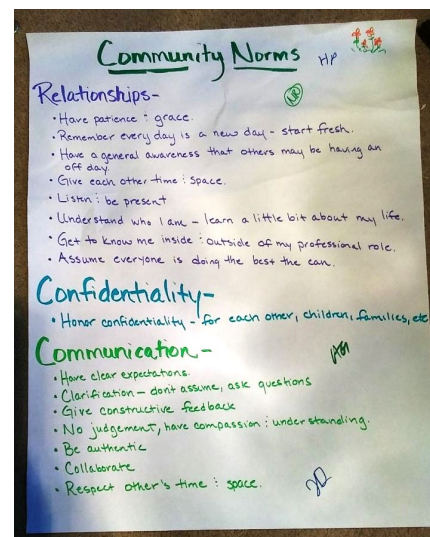 Community Norms
HP
Relationships-
• Have patience : grace.
• Remember every day is a new day - start fresh.
• Have a general awareness that others may be having an
off day.
• Give each other time : space.
• Listen : be present
• Understand who I am - learn a little bit about my life.
• Get to know me inside : outside of my professional role.
• Assume everyone is doing the best the can.
Confidentiality-
• Honor confidentiality - for each other, children, families, etc
Communication-
• Have clear expectations.
• Clarification - dont assume, ask questions
• Give constructive feedback
• No judgement, have compassion : understanding.
• Be authentic
• Collaborate
• Respect other's time : space.